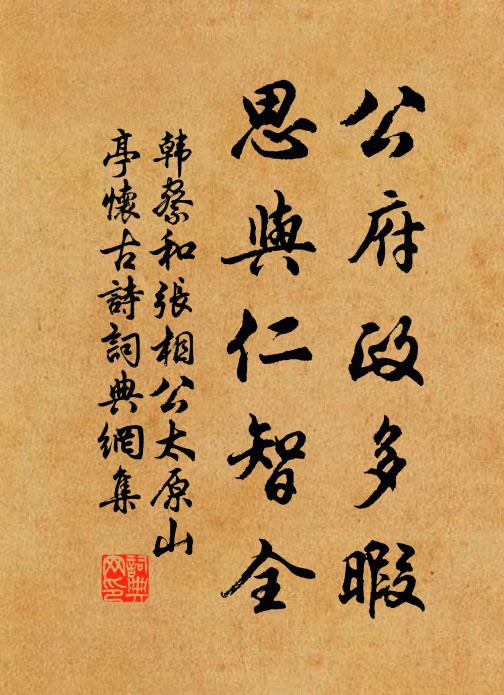 公府政多暇
思與仁智全
韩察和張相公太原山
亭懷古詩詞典網集
詞典
网印